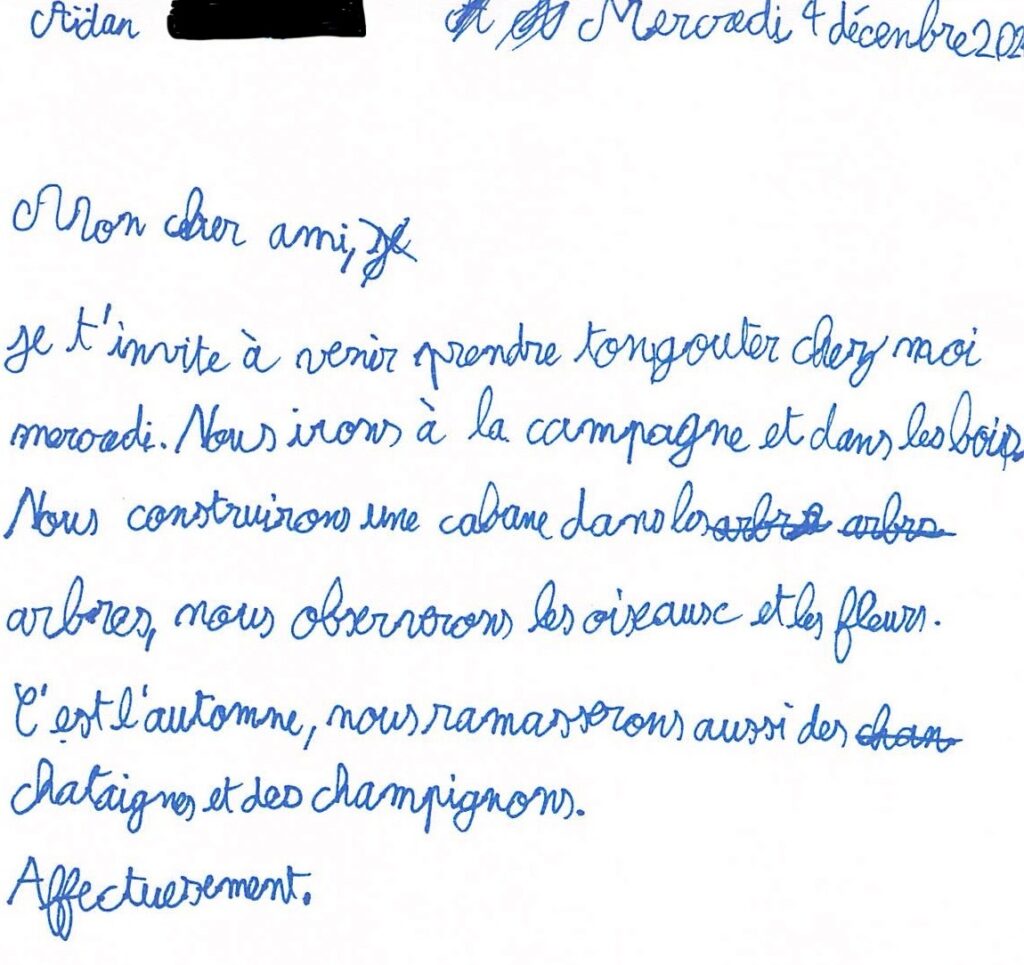 Aïdan Mercredi 4 décenbre 202
Mon cher ami,
je t'invite à venir prendre ton gouter chez moi
mercredi. Nous irons à la campagne et dans les bois.
Nous construirons une cabane dans les
arbres, nous observerons les oiseaux et les fleurs.
C'est l'automne, nous ramasserons aussi des
chataignes et des champignons.
Affectuesement.